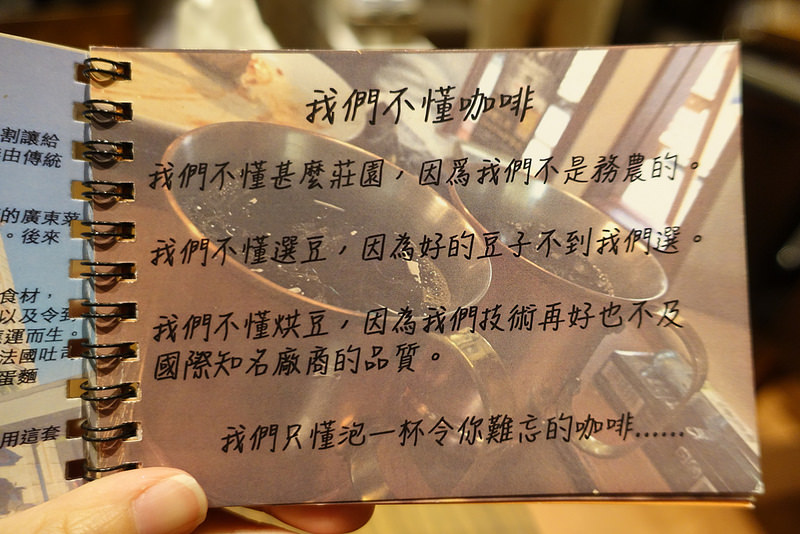 割讓給
由傳統
的廣東菜
。後來
食材，
以及令到
運而生。
法國吐司
蛋麵
用這套
我們不懂咖啡
我們不懂甚麼莊園，因爲我們不是務農的。
我們不懂選豆，因為好的豆子不到我們選。
我們不懂烘豆，因為我們技術再好也不及
國際知名廠商的品質。
我們只懂泡一杯令你難忘的咖啡......